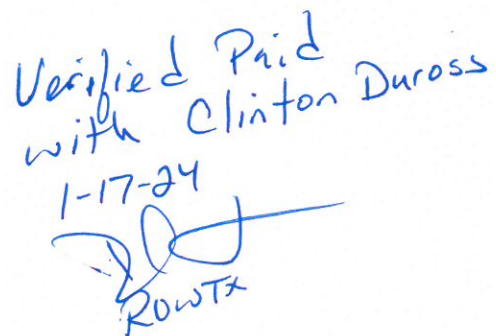 Verified Paid
with Clinton Duross
1-17-24
ROWTX